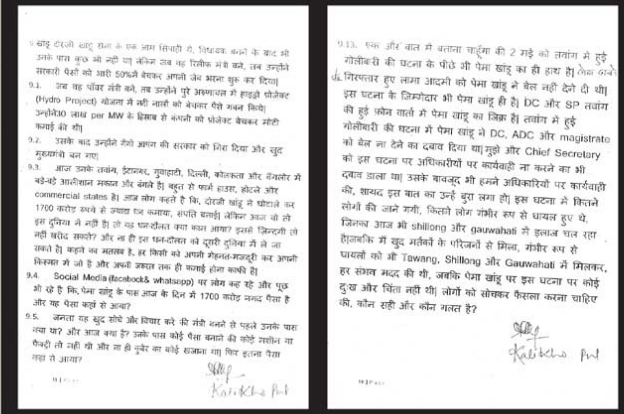 9. खांडू दोरजी खांडू सेना के एक आम सिपाही थे, विधायक बनने के बाद भी
उनके पास कुछ भी नहीं था। लेकिन जब वह रिलीफ मंत्री बने, तब उन्होंने
सरकारी पैसों को खाकर अपनी जेब भरना शुरू कर दिया।
9.1. जब वह पॉवर मंत्री बने, तब उन्होंने पूरे अरूणाचल में हाइड्रो प्रोजेक्ट
(Hydro Project) योजना में नदी नालों को बेचकर पैसे गबन किये।
उन्होंने 10 लाख per MW के हिसाब से कंपनी को प्रोजेक्ट बेचकर मोटी
कमाई की थी।
9.2. उसके बाद उन्होंने गेगो अपांग की सरकार को गिरा दिया और खुद
मुख्यमंत्री बन गए।
9.3. आज उनके तवांग, ईटानगर, गुवाहाटी, दिल्ली, कोलकत्ता और बैंगलोर में
बड़े-बड़े आलीशान मकान और बंगले है। बहुत से फार्म हाउस, होटले और
commercial states है। आज लोग कहते है कि, दोरजी खांडू ने घोटाले कर
1700 करोड़ रुपये से ज्यादा धन कमाया, संपत्ति बनाई। लेकिन आज वो तो
इस दुनिया में नहीं है। तो यह धन-दौलत क्या काम आया? इससे जिन्दगी तो
नहीं खरीद सकते? और ना ही इस धन-दौलत को दूसरी दुनिया में ले जा
सकते है। कहने का मतलब है, हर किसी को अपनी मेहनत-मजदूरी कर अपनी
किस्मत में जो है और अपनी जरूरत तक ही कमाई होना काफी है।
9.4. Social Media (facebook & whatsapp) पर लोग कह रहे और पूछ
भी रहे है कि, पेमा खांडू के पास आज के दिन में 1700 करोड़ नगद पैसा है
और यह पैसा कहां से आया?
9.5. जनता यह खुद सोचे और विचार करे की मंत्री बनने से पहले उनके पास
क्या था? और आज क्या है? उनके पास कोई पैसा बनाने की कोई मशीन या
फैक्ट्री तो नहीं थी और ना ही कुबेर का कोई खजाना था। फिर इतना पैसा
कहां से आया?
Kalikho Pul
9.13. एक और बात में बताना चाहूँगा की 2 मई को तवांग में हुई
गोलीबारी की घटना के पीछे भी पेमा खांडू का ही हाथ है।
गिरफ्तार हुए लामा आदमी को पेमा खांडू ने बेल नहीं देने दी थी।
इस घटना के जिम्मेदार भी पेमा खांडू ही है। DC और SP तवांग
की हुई फ़ोन वार्ता में पेमा खांडू का जिक्र है। तवांग में हुई
गोलीबारी की घटना में पेमा खांडू ने DC, ADC और magistrate
को बेल ना देने का दबाव दिया था। मुझे और Chief Secretary
को इस घटना पर अधिकारीयों पर कार्यवाही ना करने का भी
दबाव डाला था। उसके बावजूद भी हमने अधिकारियों पर कार्यवाही
की, शायद इस बात का उन्हें बुरा लगा हो। इस घटना में कितने
लोगों की जाने गयी, कितने लोग गंभीर रूप से घायल हुए थे,
जिनका आज भी shillong और gauwahati में इलाज चल रहा
है। जबकि में खुद मर्तकों के परिजनों से मिला, गंभीर रूप से
घायलों को भी Tawang, Shillong और Gauwahati में मिलकर,
हर संभव मदद की थी, जबकि पेमा खांडू पर इस घटना पर कोई
दुःख और चिंता नहीं थी। लोगों को सोचकर फैसला करना चाहिए
की, कौन सही और कौन गलत है?
Kalikho Pul